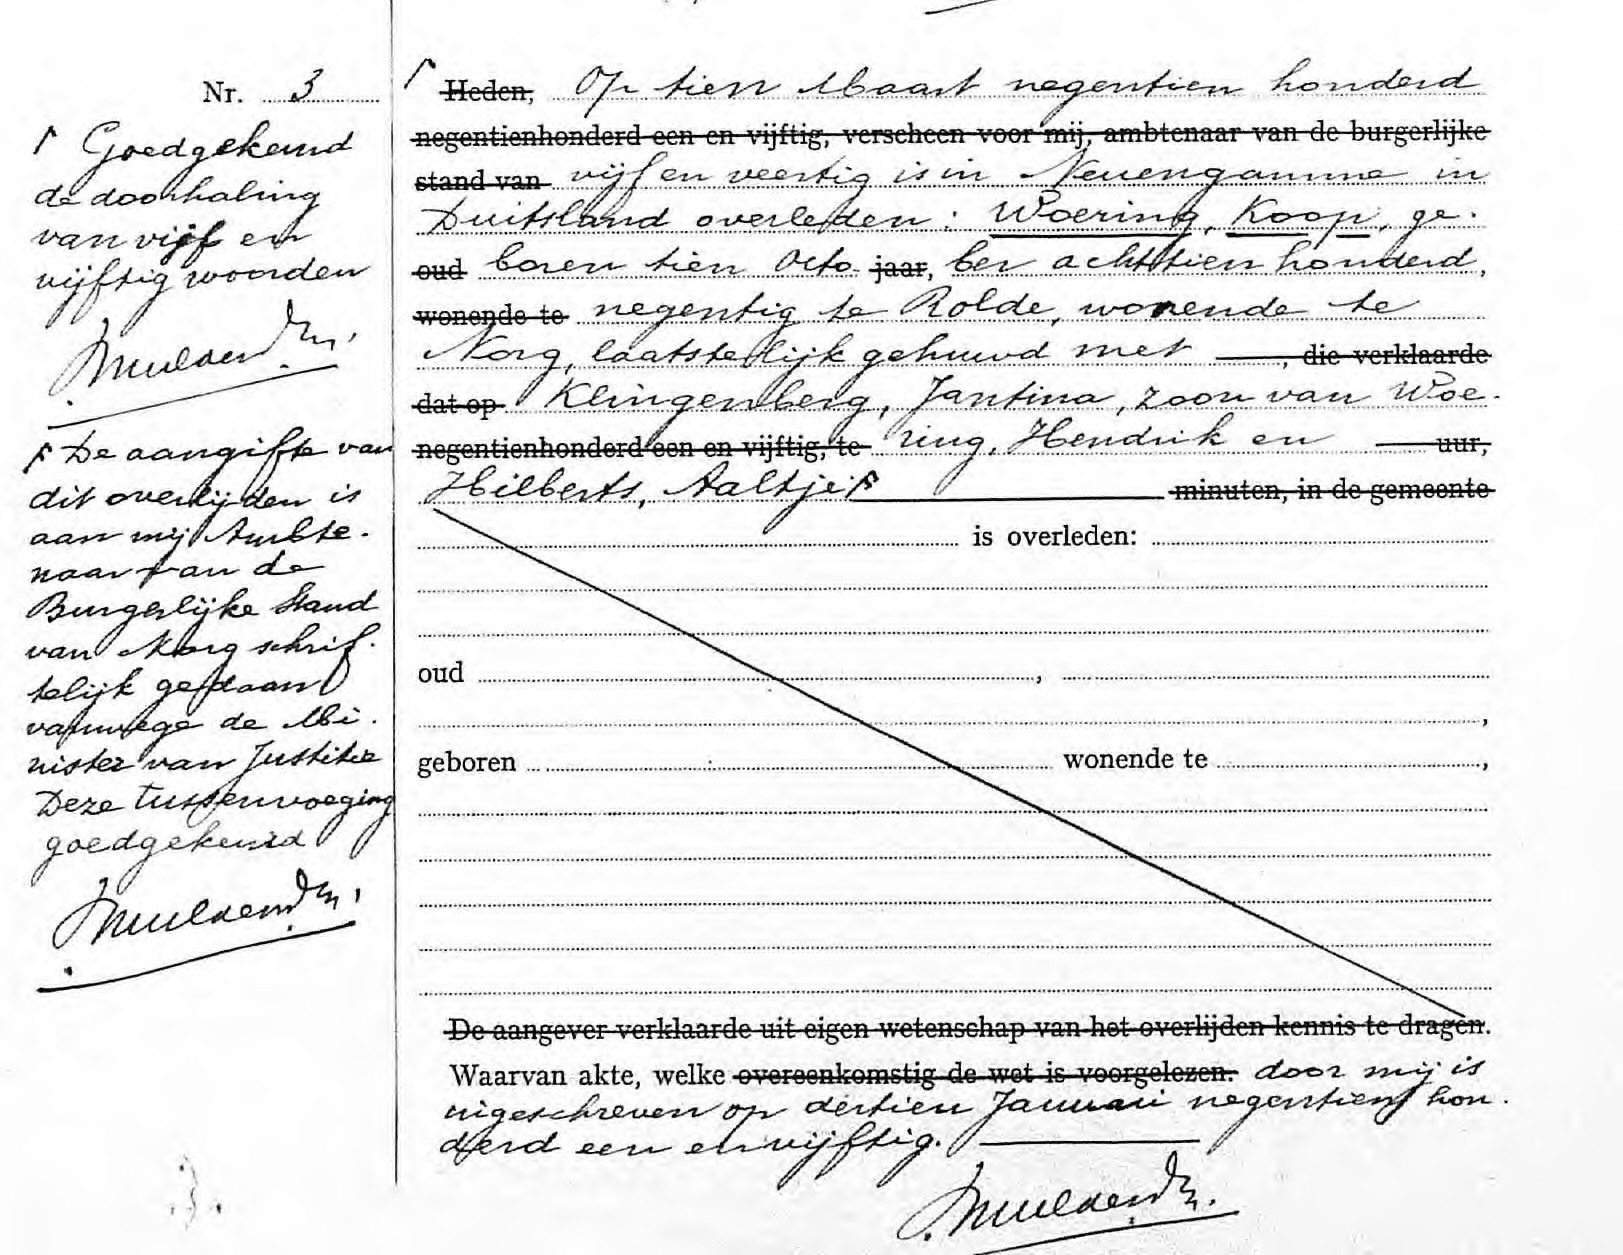 Nr. 3
Goedgekeurd
de doorhaling
van vijf en
vijftig woorden
De aangifte van
dit overlijden is
aan mij Ambte-
naar van de
Burgerlijke Stand
van Norg schrif-
telijk gedaan
vanwege de Mi-
nister van Justitie
Deze tussenvoeging
goedgekeurd
Heden, Op tien Maart negentien honderd
negentienhonderd een en vijftig, verscheen voor mij, ambtenaar van de burgerlijke
stand van vijf en veertig is in Neuengamme in
Duitsland overleden: Woering, Koop, ge-
oud boren tien Octo- jaar, ber achttien honderd,
wonende te negentig te Rolde, wonende te
Norg, laatstelijk gehuwd met , die verklaarde
dat op Klingenberg, Jantina, zoon van Woe-
negentienhonderd een en vijftig, te ring, Hendrik en uur,
Hilberts, Aaltje. minuten, in de gemeente
is overleden:
oud ,
,
geboren wonende te ,
De aangever verklaarde uit eigen wetenschap van het overlijden kennis te dragen.
Waarvan akte, welke overeenkomstig de wet is voorgelezen. door mij is
ingeschreven op dertien Januari negentien hon-
derd een en vijftig.